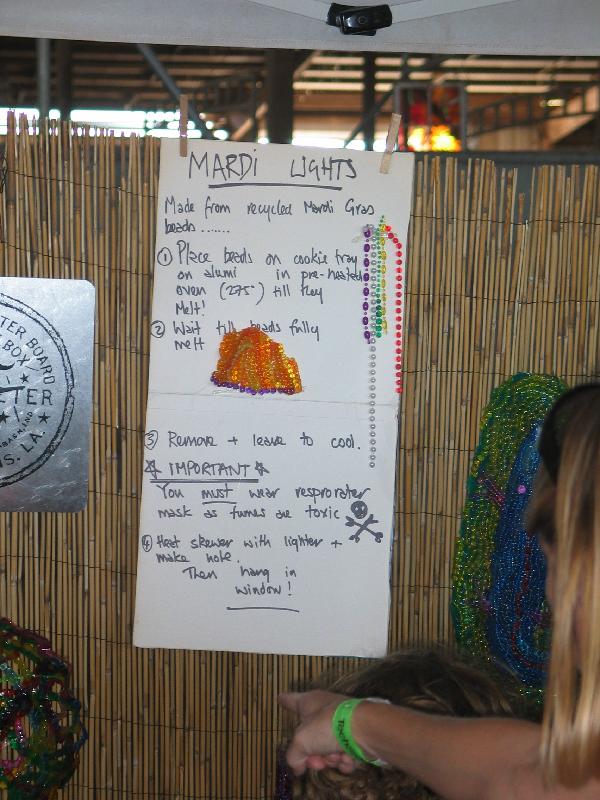 MARDI LIGHTS
Made from recycled Mardi Gras
beads.......
① Place beads on cookie tray
on alumi in pre-heated
oven (275°) till they
Melt!
② Wait till beads fully
melt
③ Remove + leave to cool.
IMPORTANT
You must wear resprorater
mask as fumes are toxic
④ Heat skewer with lighter +
make hole.
Then hang in
window!
TER BOARD
BOX
ETER
NS, LA.